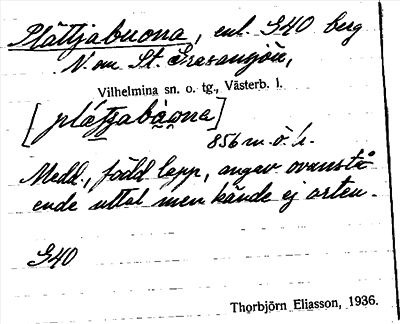 Plättjabuona, enl. G40 berg
N. om St. Gräsansjön,
Vilhelmina sn. o. tg., Västerb. l.
[plätjabuona]
856 m. ö. h.
Medd., född lapp, angav ovanstå
ende uttal men kände ej orten.
G40
Thorbjörn Eliasson, 1936.